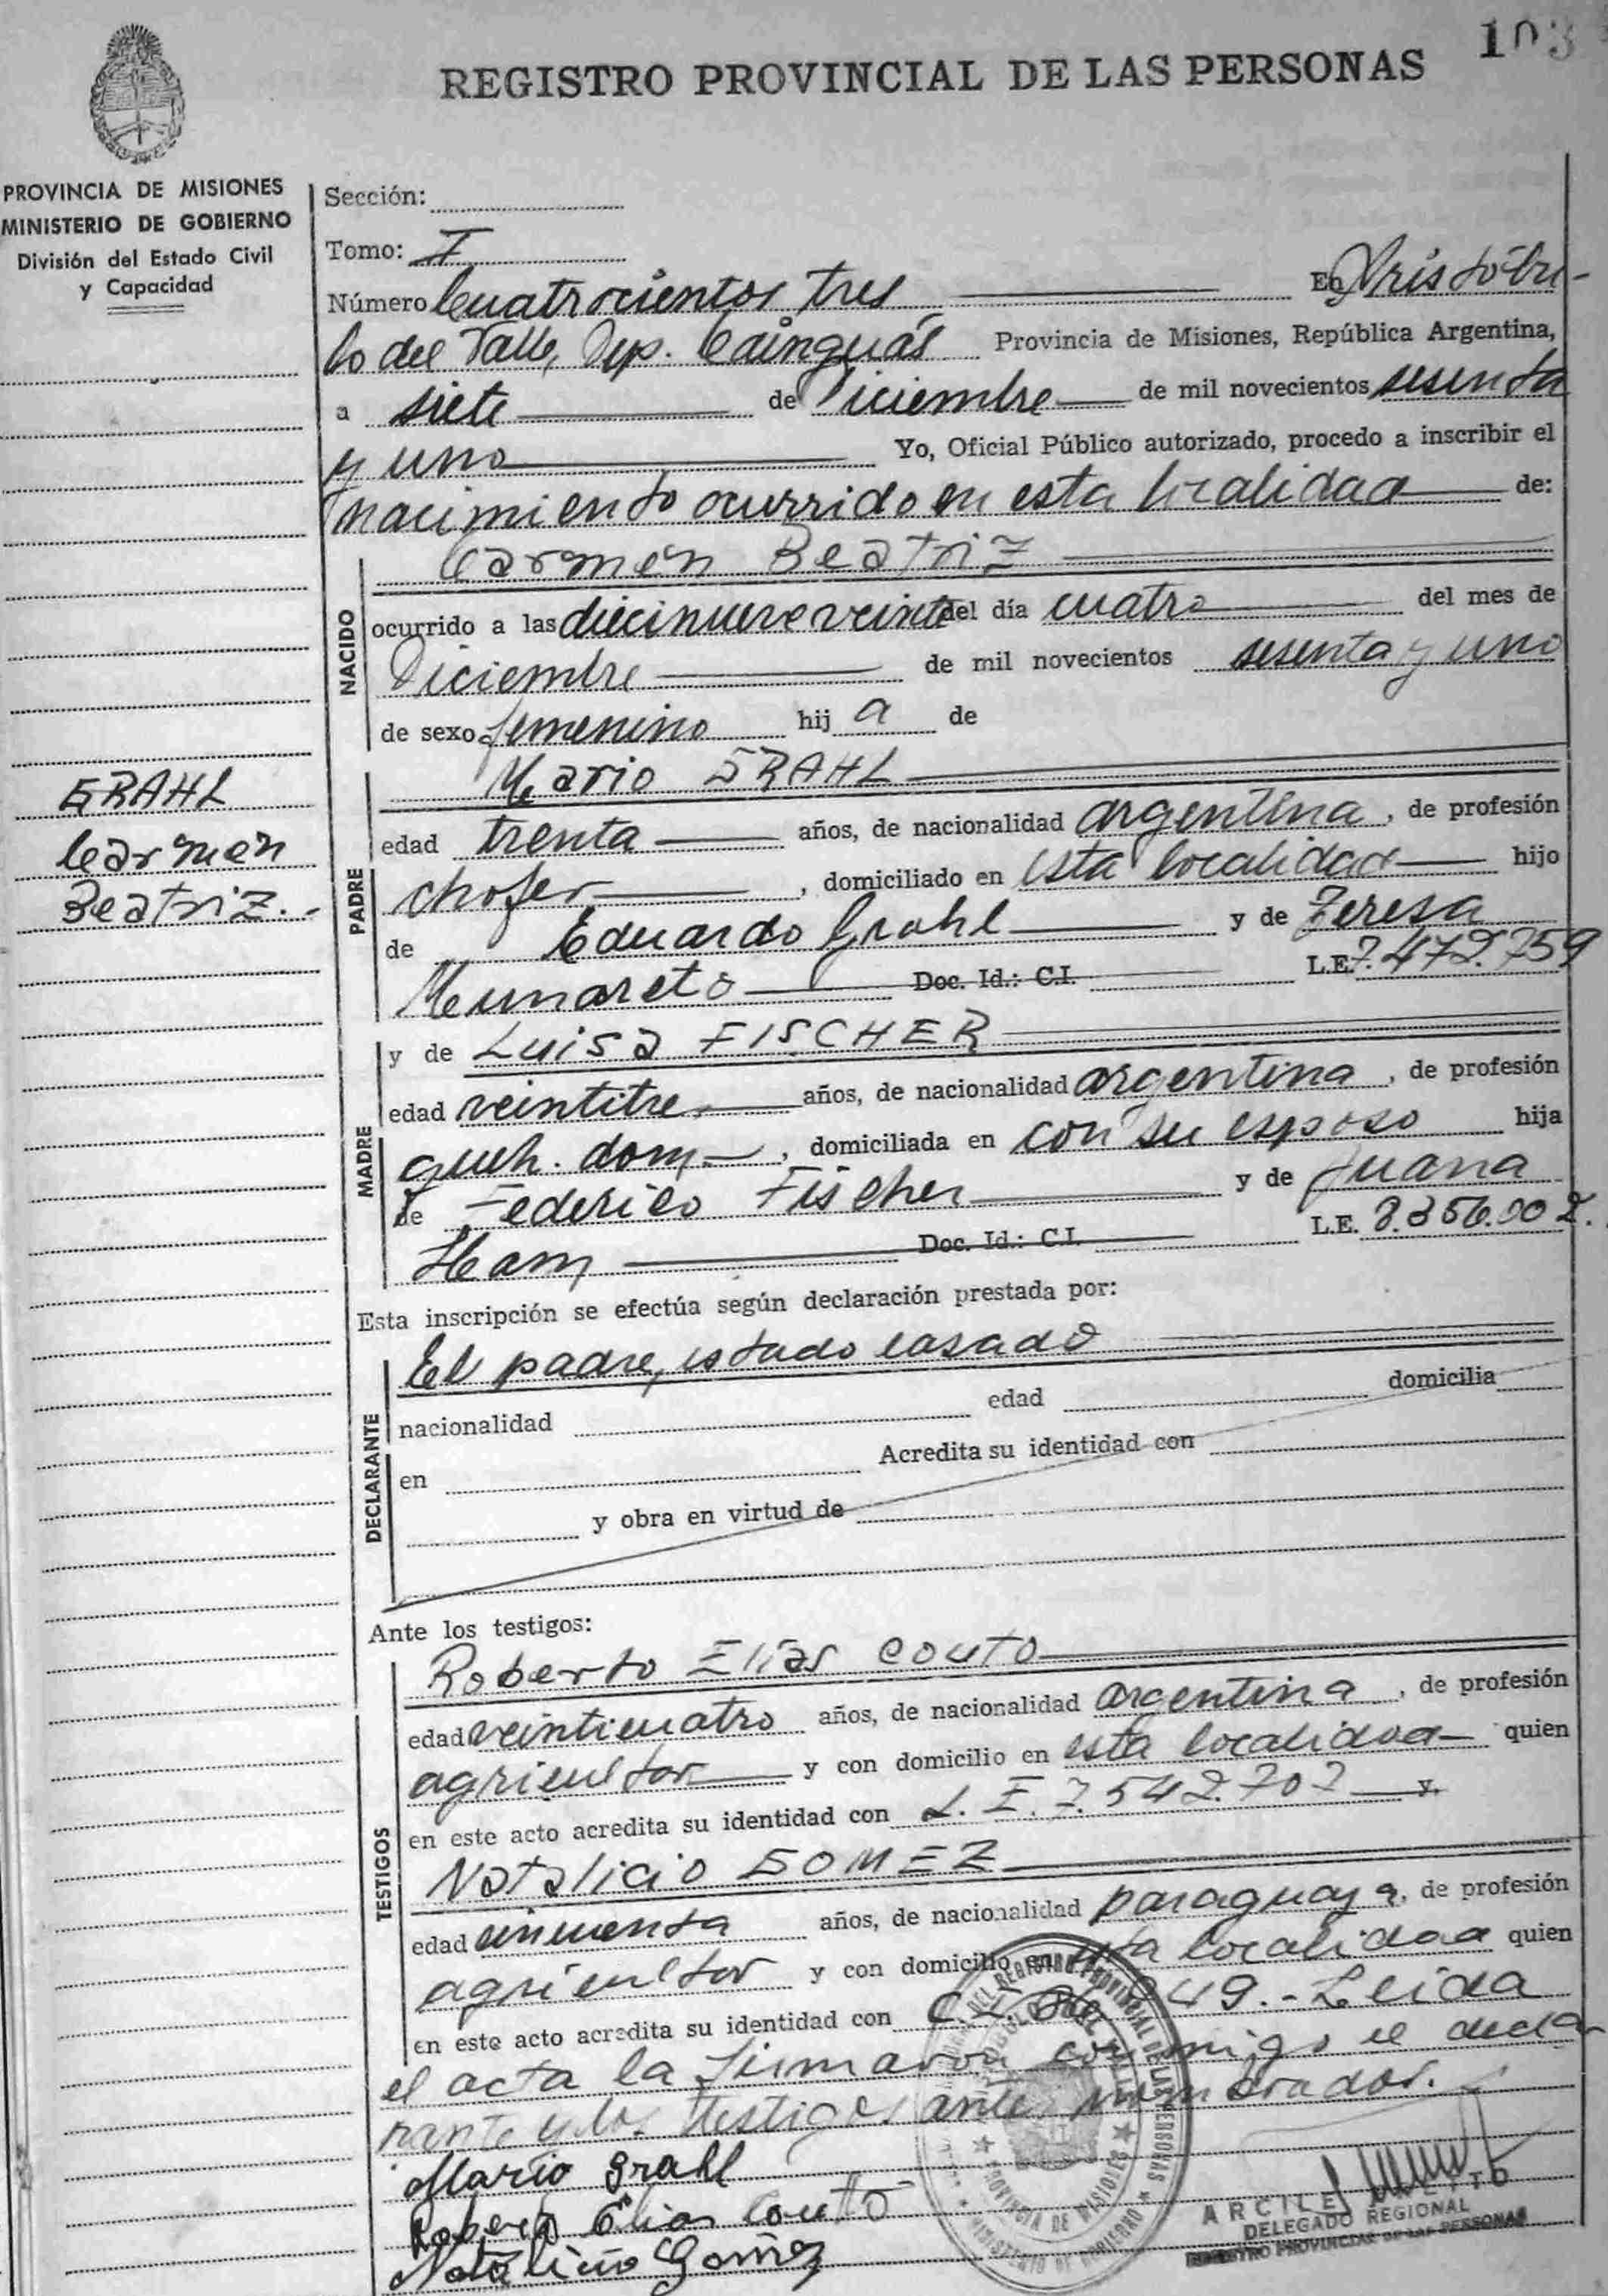 103
REGISTRO PROVINCIAL DE LAS PERSONAS
PROVINCIA DE MISIONES
MINISTERIO DE GOBIERNO
División del Estado Civil
y Capacidad
Sección:
Tomo: I
Número Cuatrocientos tres En Aristóbu-
lo del Valle, Dep. Cainguás Provincia de Misiones, República Argentina,
a siete de Diciembre de mil novecientos sesenta
y uno Yo, Oficial Público autorizado, procedo a inscribir el
nacimiento ocurrido en esta localidad de:
Carmen Beatriz
NACIDO
ocurrido a las diecinueve veinte del día cuatro del mes de
Diciembre de mil novecientos sesenta y uno
de sexo femenino hij a de
Mario GRAHL
GRAHL
Carmen
Beatriz.-
PADRE
edad trenta años, de nacionalidad argentina, de profesión
chofer, domiciliado en esta localidad hijo
de Eduardo Grahl y de Teresa
Munareto Doc. Id.: C.I. L.E. 7.472.759
MADRE
y de Luisa FISCHER
edad veintitre años, de nacionalidad argentina, de profesión
queh. dom., domiciliada en con su esposo hija
de Federico Fischer y de Juana
Ham Doc. Id.: C.I. L.E. 3.356.002.
Esta inscripción se efectúa según declaración prestada por:
El padre, estado casado
DECLARANTE
nacionalidad edad domicilia
en Acredita su identidad con
y obra en virtud de
Ante los testigos:
Roberto Elías COUTO
TESTIGOS
edad veinticuatro años, de nacionalidad argentina, de profesión
agricultor y con domicilio en esta localidad quien
en este acto acredita su identidad con L.E. 7.542.707 y.
Natalicio GOMEZ
edad cincuenta años, de nacionalidad paraguaya, de profesión
agricultor y con domicilio en esta localidad quien
en este acto acredita su identidad con C.I. 949.- Leída
el acta la firmaron conmigo el decla
rante y los testigos antes nombrados.
Mario Grahl
Roberto Elias Couto
Natalicio Gomez
DELEGADO REGIONAL
REGISTRO PROVINCIAL DE LAS PERSONAS
PROVINCIA DE MISIONES
MINISTERIO DE GOBIERNO